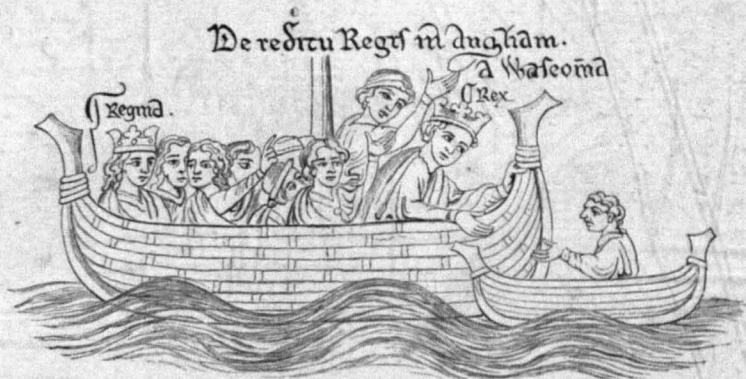 De reditu Regis in Angliam.
a Wasconia
Regina.
Rex